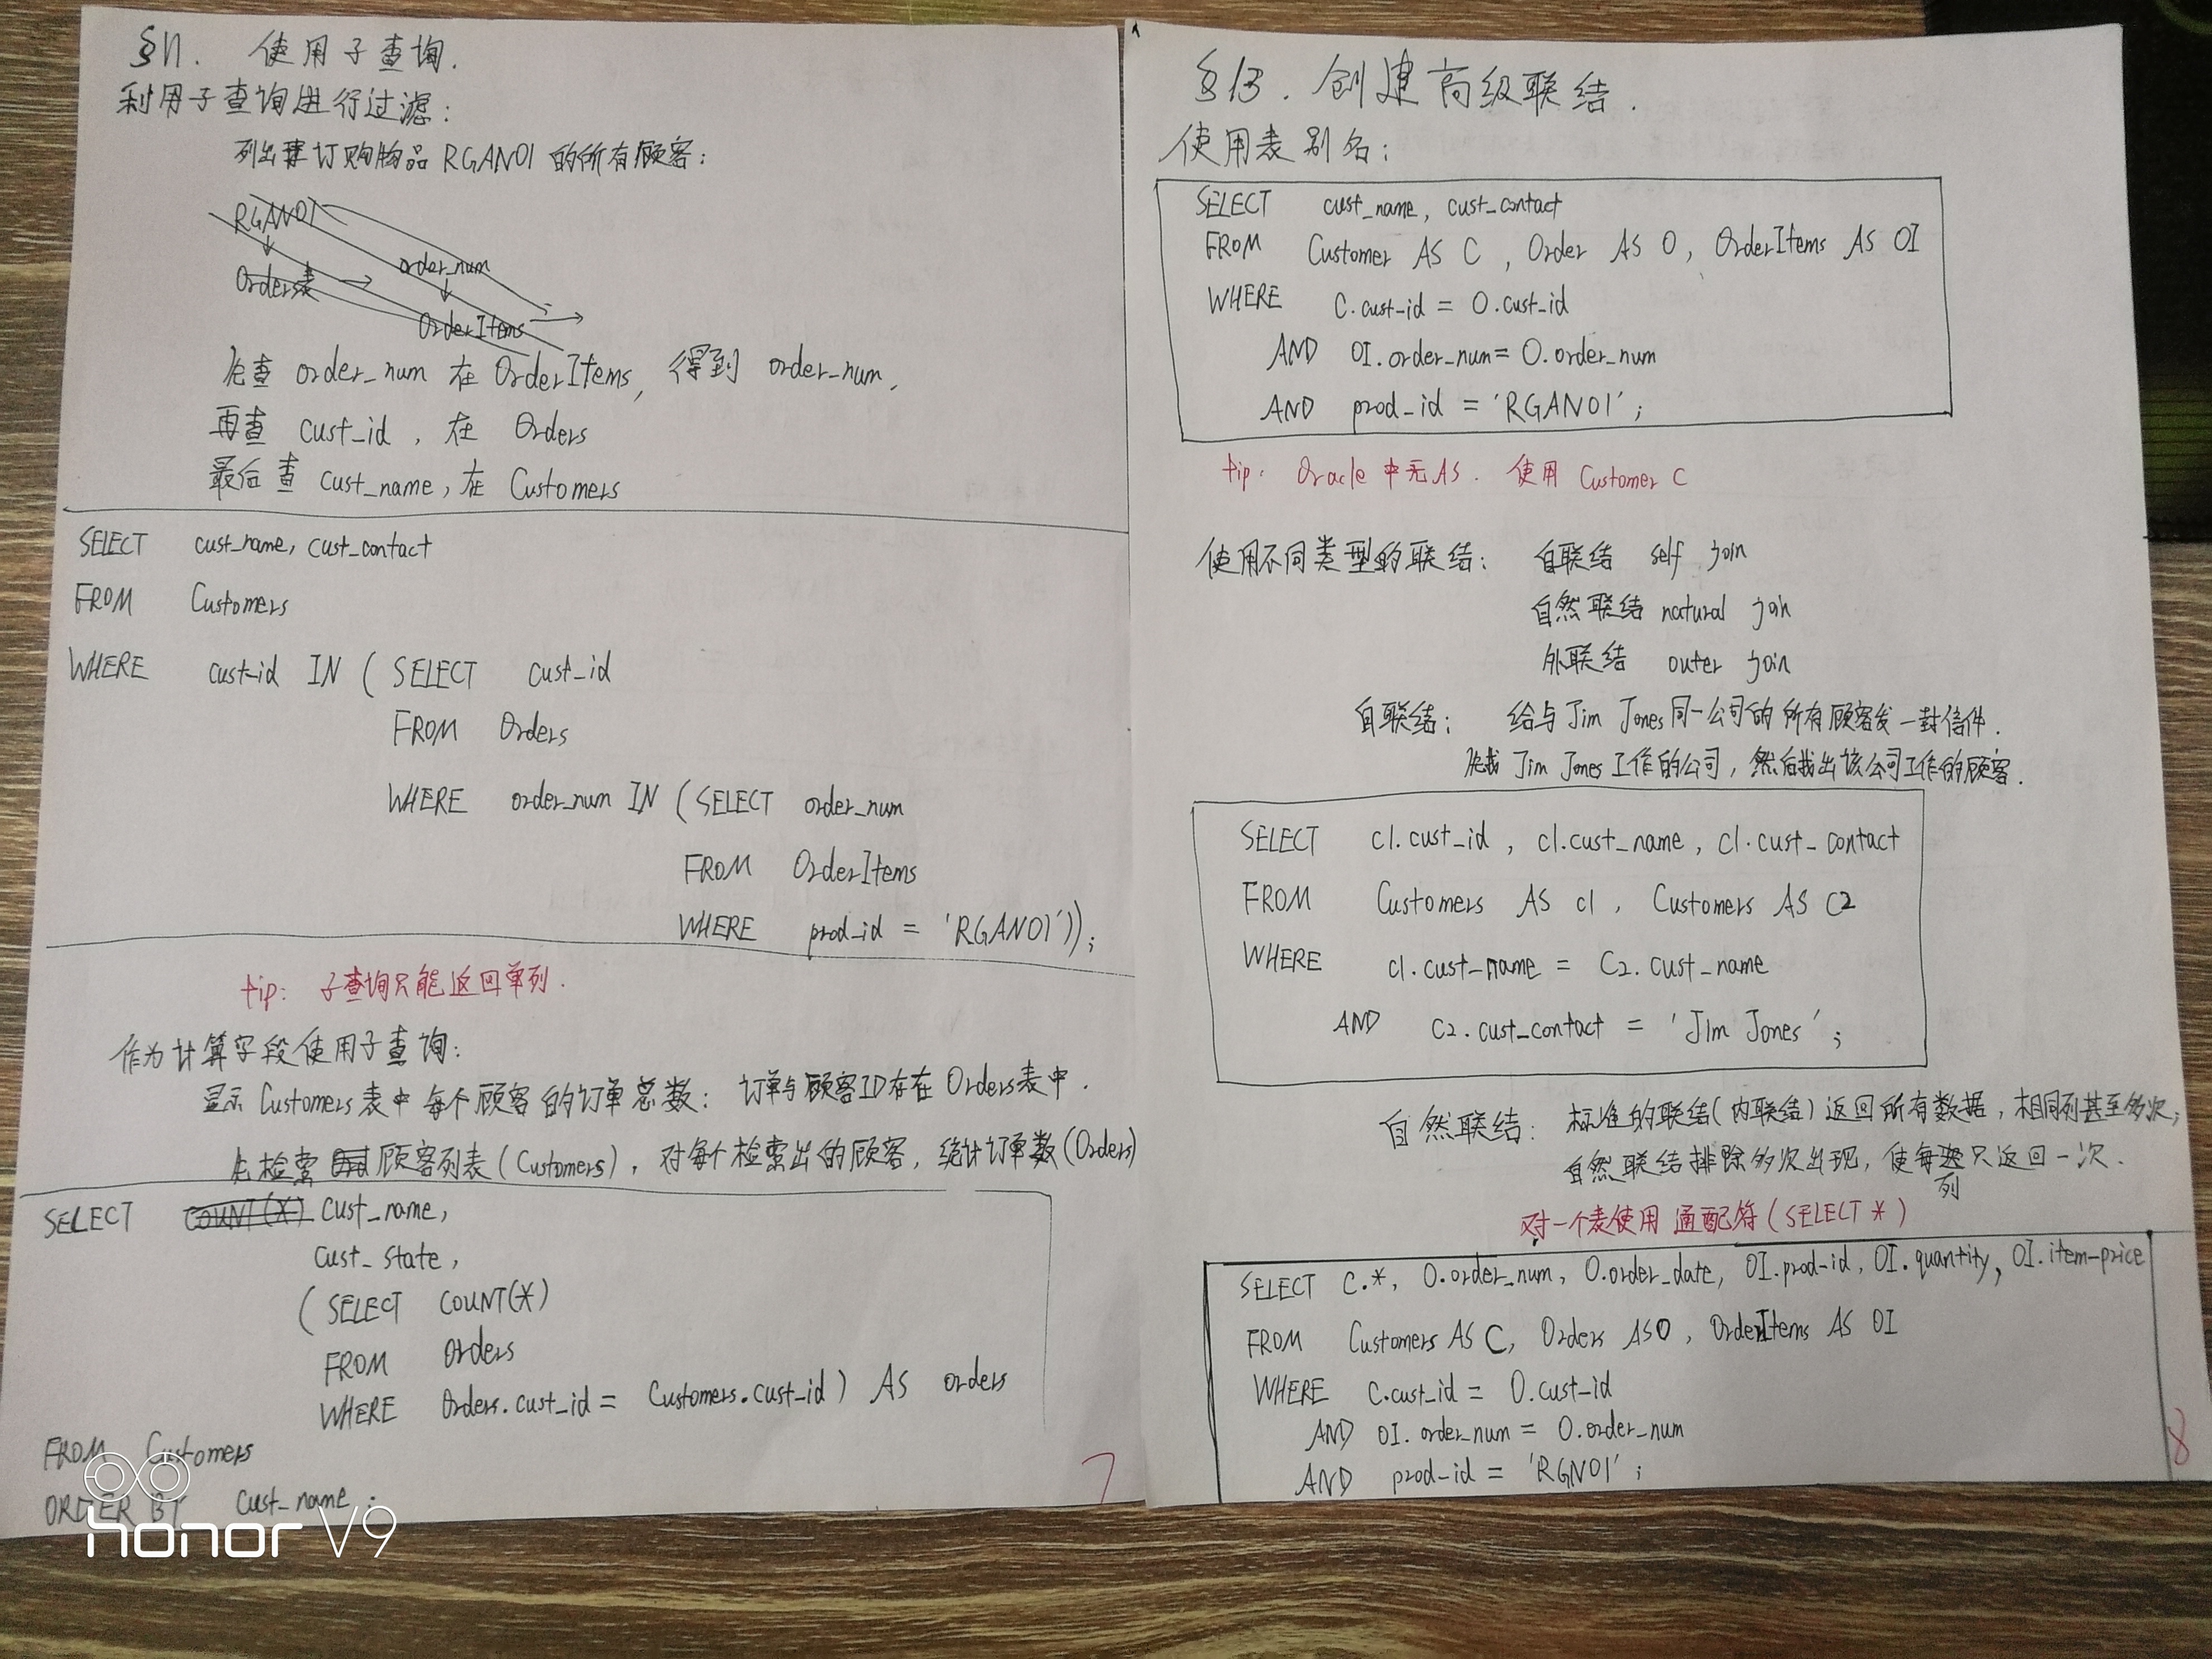 §11. 使用子查询.
利用子查询进行过滤:
列出订购物品 RGAN01 的所有顾客:
RGAN01
Orders表 → order_num
OrderItems →
先查 order_num 在 OrderItems, 得到 order_num,
再查 cust_id, 在 Orders
最后查 cust_name, 在 Customers
SELECT cust_name, cust_contact
FROM Customers
WHERE cust_id IN ( SELECT cust_id
FROM Orders
WHERE order_num IN (SELECT order_num
FROM OrderItems
WHERE prod_id = 'RGAN01'));
tip: 子查询只能返回单列.
作为计算字段使用子查询:
显示 Customers 表中每个顾客的订单总数: 订单与顾客ID存在 Orders表中.
先检索 顾客列表(Customers), 对每个检索出的顾客, 统计订单数(Orders)
SELECT COUNT(*) cust_name,
cust_state,
( SELECT COUNT(*)
FROM Orders
WHERE Orders.cust_id = Customers.cust_id ) AS orders
FROM Customers
ORDER BY cust_name;
7
honor V9
§13. 创建高级联结.
使用表别名:
SELECT cust_name, cust_contact
FROM Customer AS C, Order AS O, OrderItems AS OI
WHERE C.cust_id = O.cust_id
AND OI.order_num = O.order_num
AND prod_id = 'RGAN01';
tip: Oracle 中无AS. 使用 Customer C
使用不同类型的联结: 自联结 self join
自然联结 natural join
外联结 outer join
自联结: 给与 Jim Jones 同一公司的所有顾客发一封信件.
先找 Jim Jones 工作的公司, 然后找出该公司工作的顾客.
SELECT c1.cust_id, c1.cust_name, c1.cust_contact
FROM Customers AS c1, Customers AS C2
WHERE c1.cust_name = C2.cust_name
AND C2.cust_contact = 'Jim Jones';
自然联结: 标准的联结(内联结)返回所有数据, 相同列甚至多次;
自然联结排除多次出现, 使每列只返回一次.
对一个表使用 通配符(SELECT *)
SELECT C.*, O.order_num, O.order_date, OI.prod_id, OI.quantity, OI.item-price
FROM Customers AS C, Orders AS O, OrderItems AS OI
WHERE C.cust_id = O.cust_id
AND OI.order_num = O.order_num
AND prod_id = 'RGN01';
8